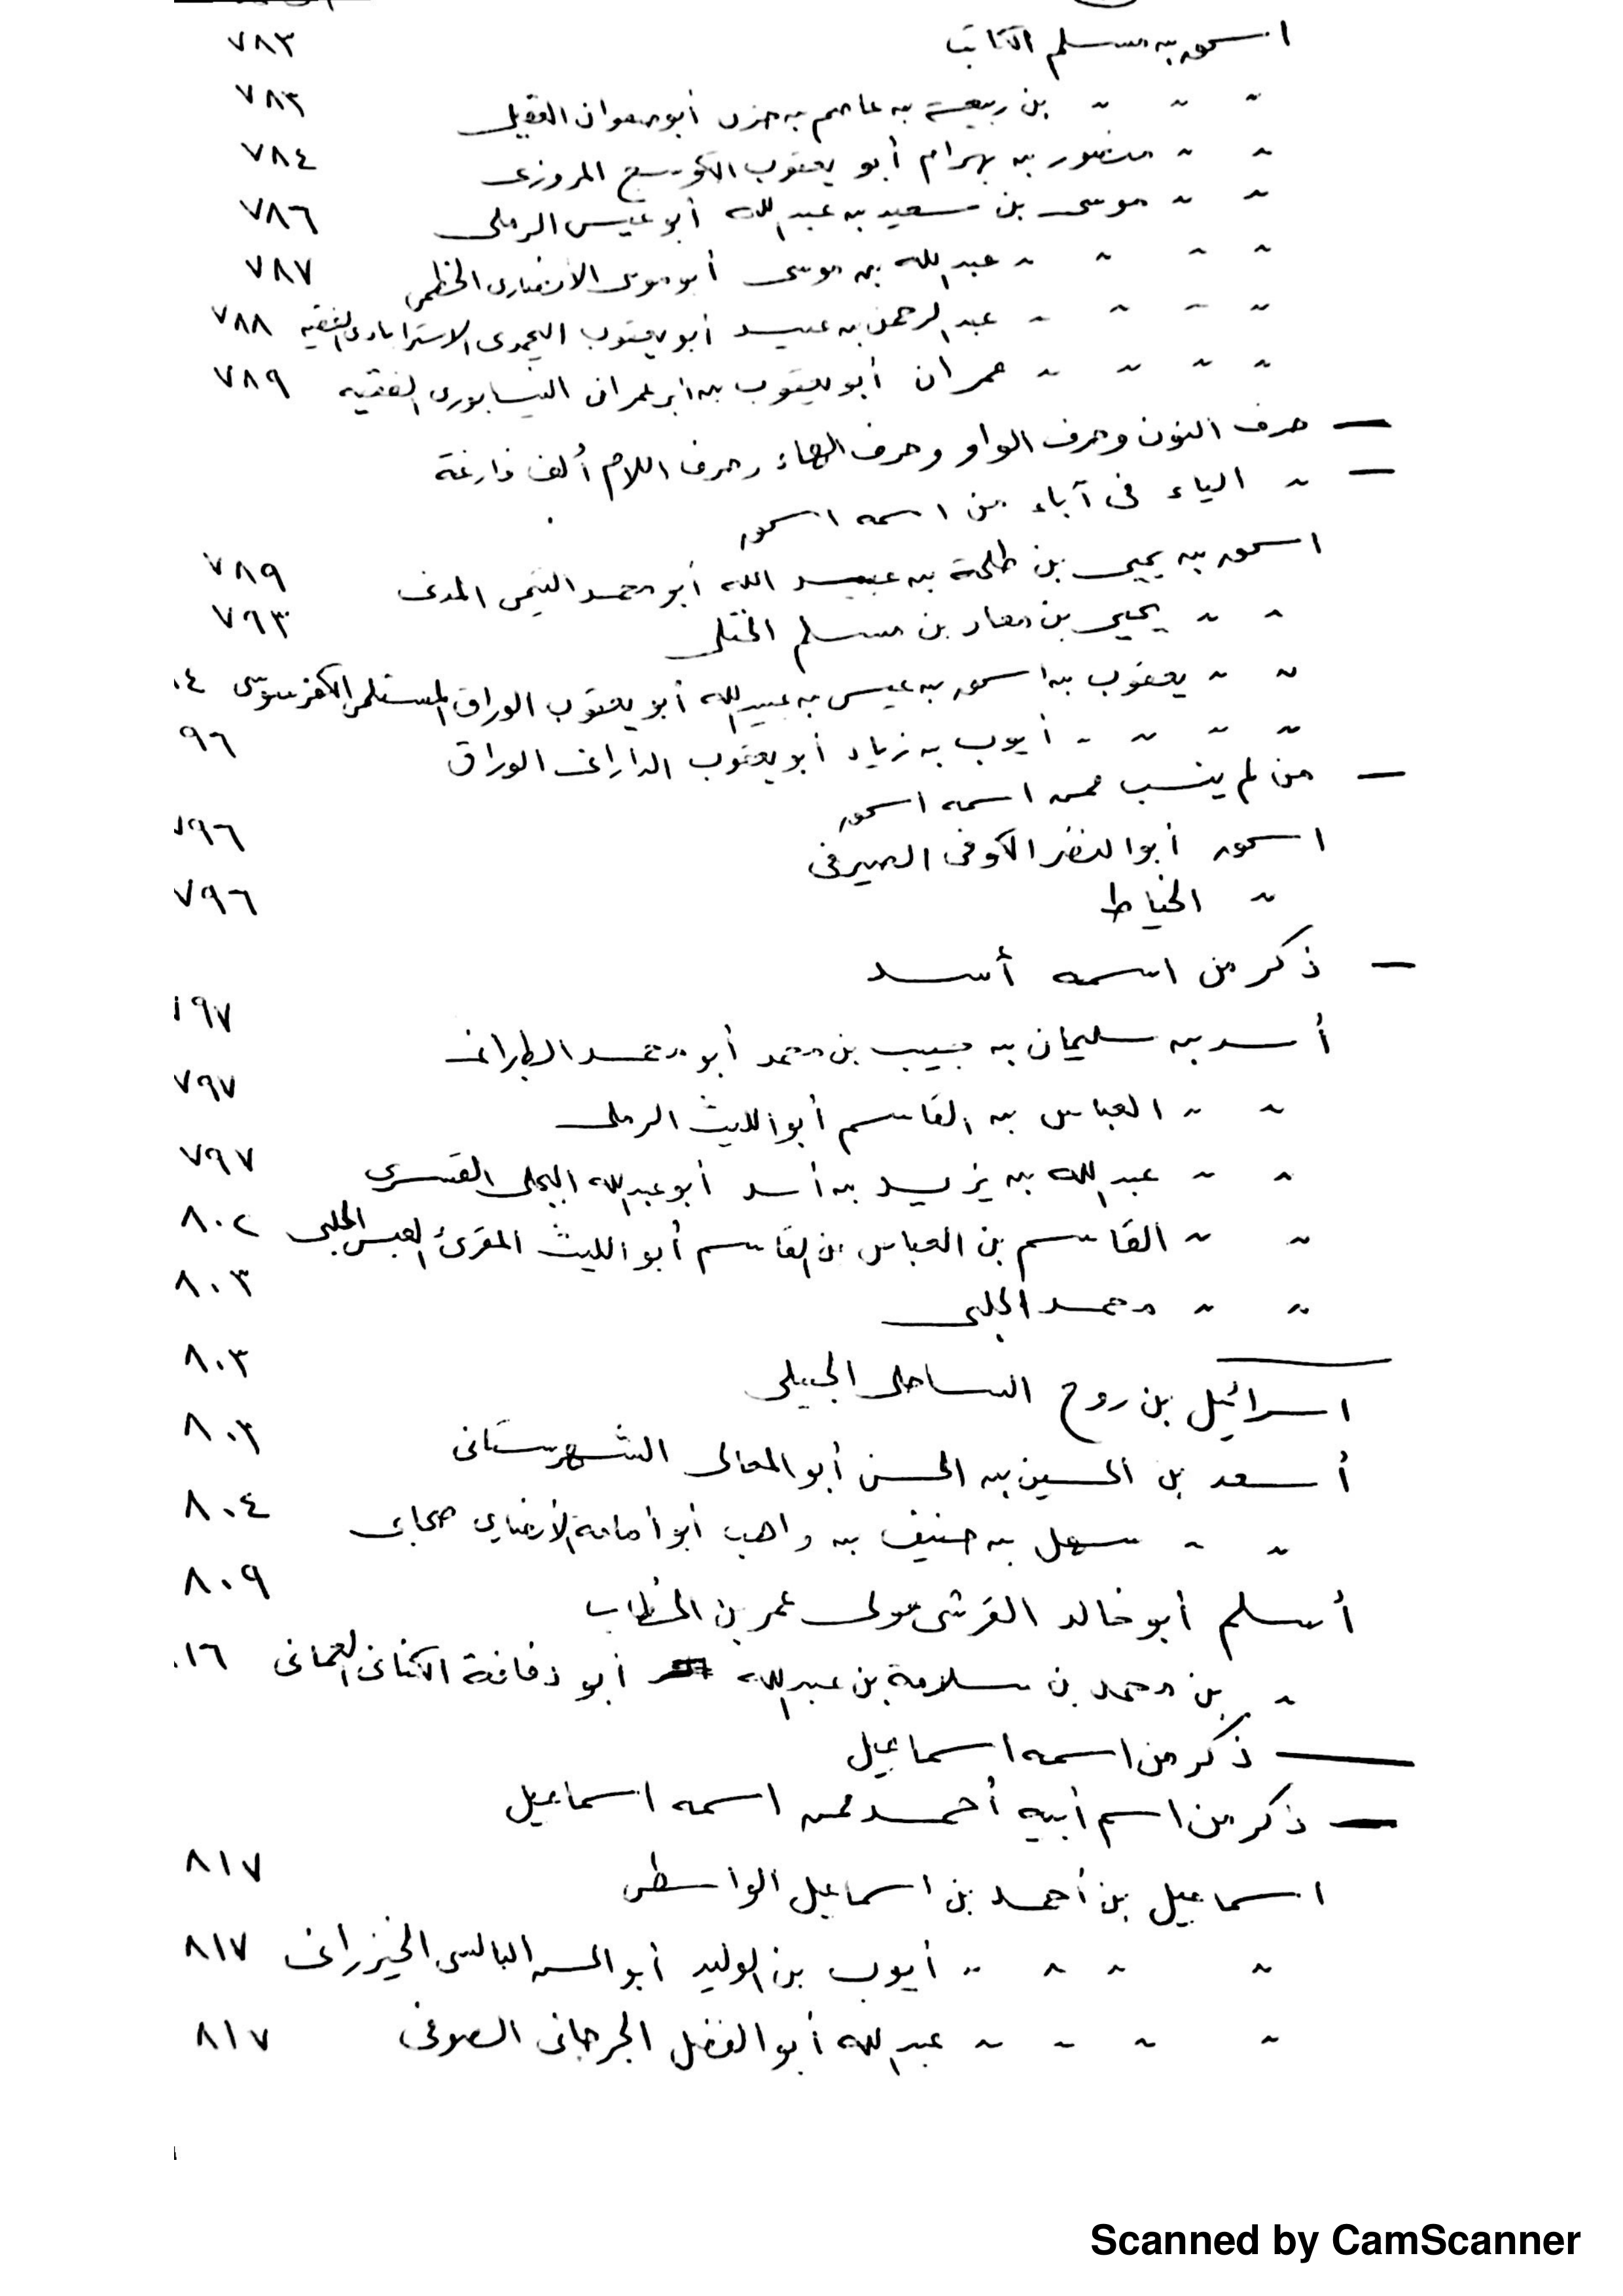 اسحور به مسلم الكاتب ٧٨٣
〃 〃 〃 بن ربيعة به عاصم به حزن أبو صفوان العقيلى ٧٨٣
〃 〃 منصور به بهرام أبو يعقوب الكوسج المروزى ٧٨٤
〃 〃 موسى بن سعيد به عبد الله أبو عيسى الرملى ٧٨٦
〃 〃 〃 〃 عبد الله به موسى أبو موسى الأنصارى الخطمى ٧٨٧
〃 〃 〃 〃 عبد الرحمن به عبيد أبو يعقوب اليحمدى الاسترابادى الفقيه ٧٨٨
〃 〃 〃 〃 عمران أبو يعقوب به أبى عمران النيسابورى الفقيه ٧٨٩
— حرف النون وحرف الواو وحرف الهاء وحرف اللام ألف فارغة
— 〃 الياء فى آباء من اسمه اسحور
اسحور به يحيى بن طلحة به عبيد الله أبو محمد التيمى المدنى ٧٨٩
〃 〃 يحيى بن معاذ بن مسلم الختلى ٧٩٣
〃 〃 يعقوب به اسحور به عيسى به عبيد الله أبو يعقوب الوراق المستملى الكفرسوسى ٠٤
〃 〃 〃 〃 أيوب به زياد أبو يعقوب الدارانى الوراق ٩٦
— من لم ينسب ممن اسمه اسحور
اسحور أبو النضر الكوفى الصيرفى ٧٩٦
〃 الخياط ٧٩٦
— ذكر من اسمه أسد
أسد به سليمان به حبيب بن محمد أبو محمد الطبرانى ٩٧
〃 〃 العباس به القاسم أبو الليث الرملى ٧٩٧
〃 〃 عبد الله به يزيد به أسد أبو عبد الله البجلى القسرى ٧٩٧
〃 〃 القاسم بن العباس بن القاسم أبو الليث المقرئ العبسى الحلبى ٨٠٢
〃 〃 محمد الحلبى ٨٠٣
اسرائيل بن روح الساحلى الجبيلى ٨٠٣
أسعد بن الحسين به الحسن أبو المعالى الشهرستانى ٨٠٣
〃 〃 سهل به حنيف به واهب أبو أمامة الأنصاري صحابى ٨٠٤
أسلم أبو خالد القرشى مولى عمر بن الخطاب ٨٠٩
〃 بن محمد بن سلامة بن عبد الله أبو دفافة الكنانى العمانى ١٦
— ذكر من اسمه اسماعيل
— ذكر من اسم أبيه أحمد ممن اسمه اسماعيل
اسماعيل بن أحمد بن اسماعيل الواسطى ٨١٧
〃 〃 〃 〃 أيوب بن الوليد أبو الحسن البالسى الخيزرانى ٨١٧
〃 〃 〃 〃 عبد الله أبو الفضل الجرجانى الصوفى ٨١٧
Scanned by CamScanner